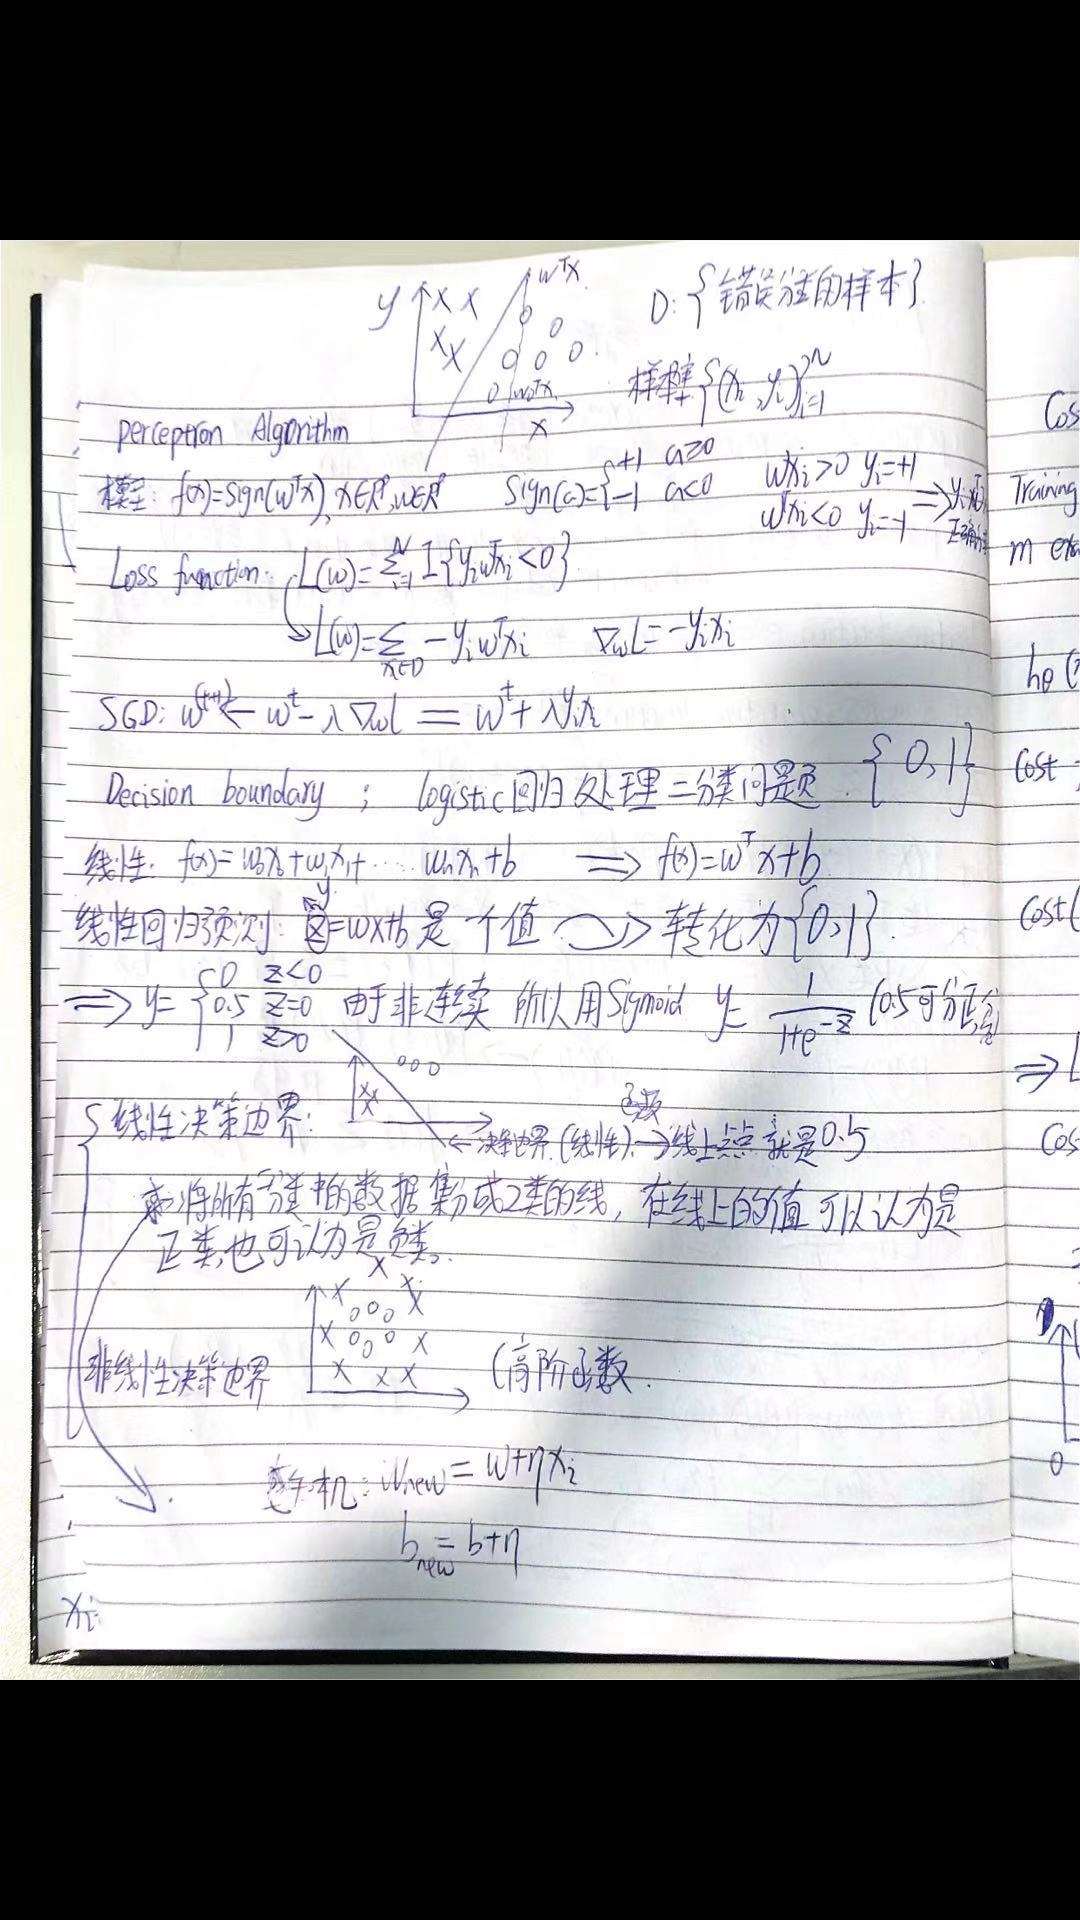 y
wᵀx
D: {错误分类的样本}
x
样本集{(xᵢ, yᵢ)}ᵢ₌₁ᴺ
perceptron Algorithm
模型: f(x)=Sign(wᵀx), x∈Rᵖ, w∈Rᵖ Sign(a)={+1 a≥0
−1 a<0
wᵀxᵢ>0 yᵢ=+1
wᵀxᵢ<0 yᵢ=−1 ⇒
Loss function: L(w)=∑ᵢ₌₁ᴺ I{yᵢwᵀxᵢ<0}
L(w)=∑ₓᵢ∈D −yᵢwᵀxᵢ ∇wL=−yᵢxᵢ
SGD: w⁽ᵗ⁺¹⁾← wᵗ−λ∇wL = wᵗ+λyᵢxᵢ
Decision boundary ; logistic回归处理二分类问题. {0,1}
线性: f(x)=w₀x₀+w₁x₁+…wₙxₙ+b ⇒ f(x)=wᵀx+b
线性回归预测: z=wx+b 是一个值 → 转化为{0,1}.
⇒ y={0 z<0
0.5 z=0 由于非连续 所以用Sigmoid y=1/(1+e⁻ᶻ) (0.5可分正,负)
1 z>0
线性决策边界:
← 决策边界(线性).→线上点就是0.5
将所有分类中的数据集分成2类的线, 在线上的值可以认为是
正类,也可认为是负类.
非线性决策边界 (高阶函数.
感知机: wnew=w+ηxᵢ
bnew=b+η
xᵢ
Cos
Training
m exa
hθ(
Cost
Cost(
⇒ L
Cos
0